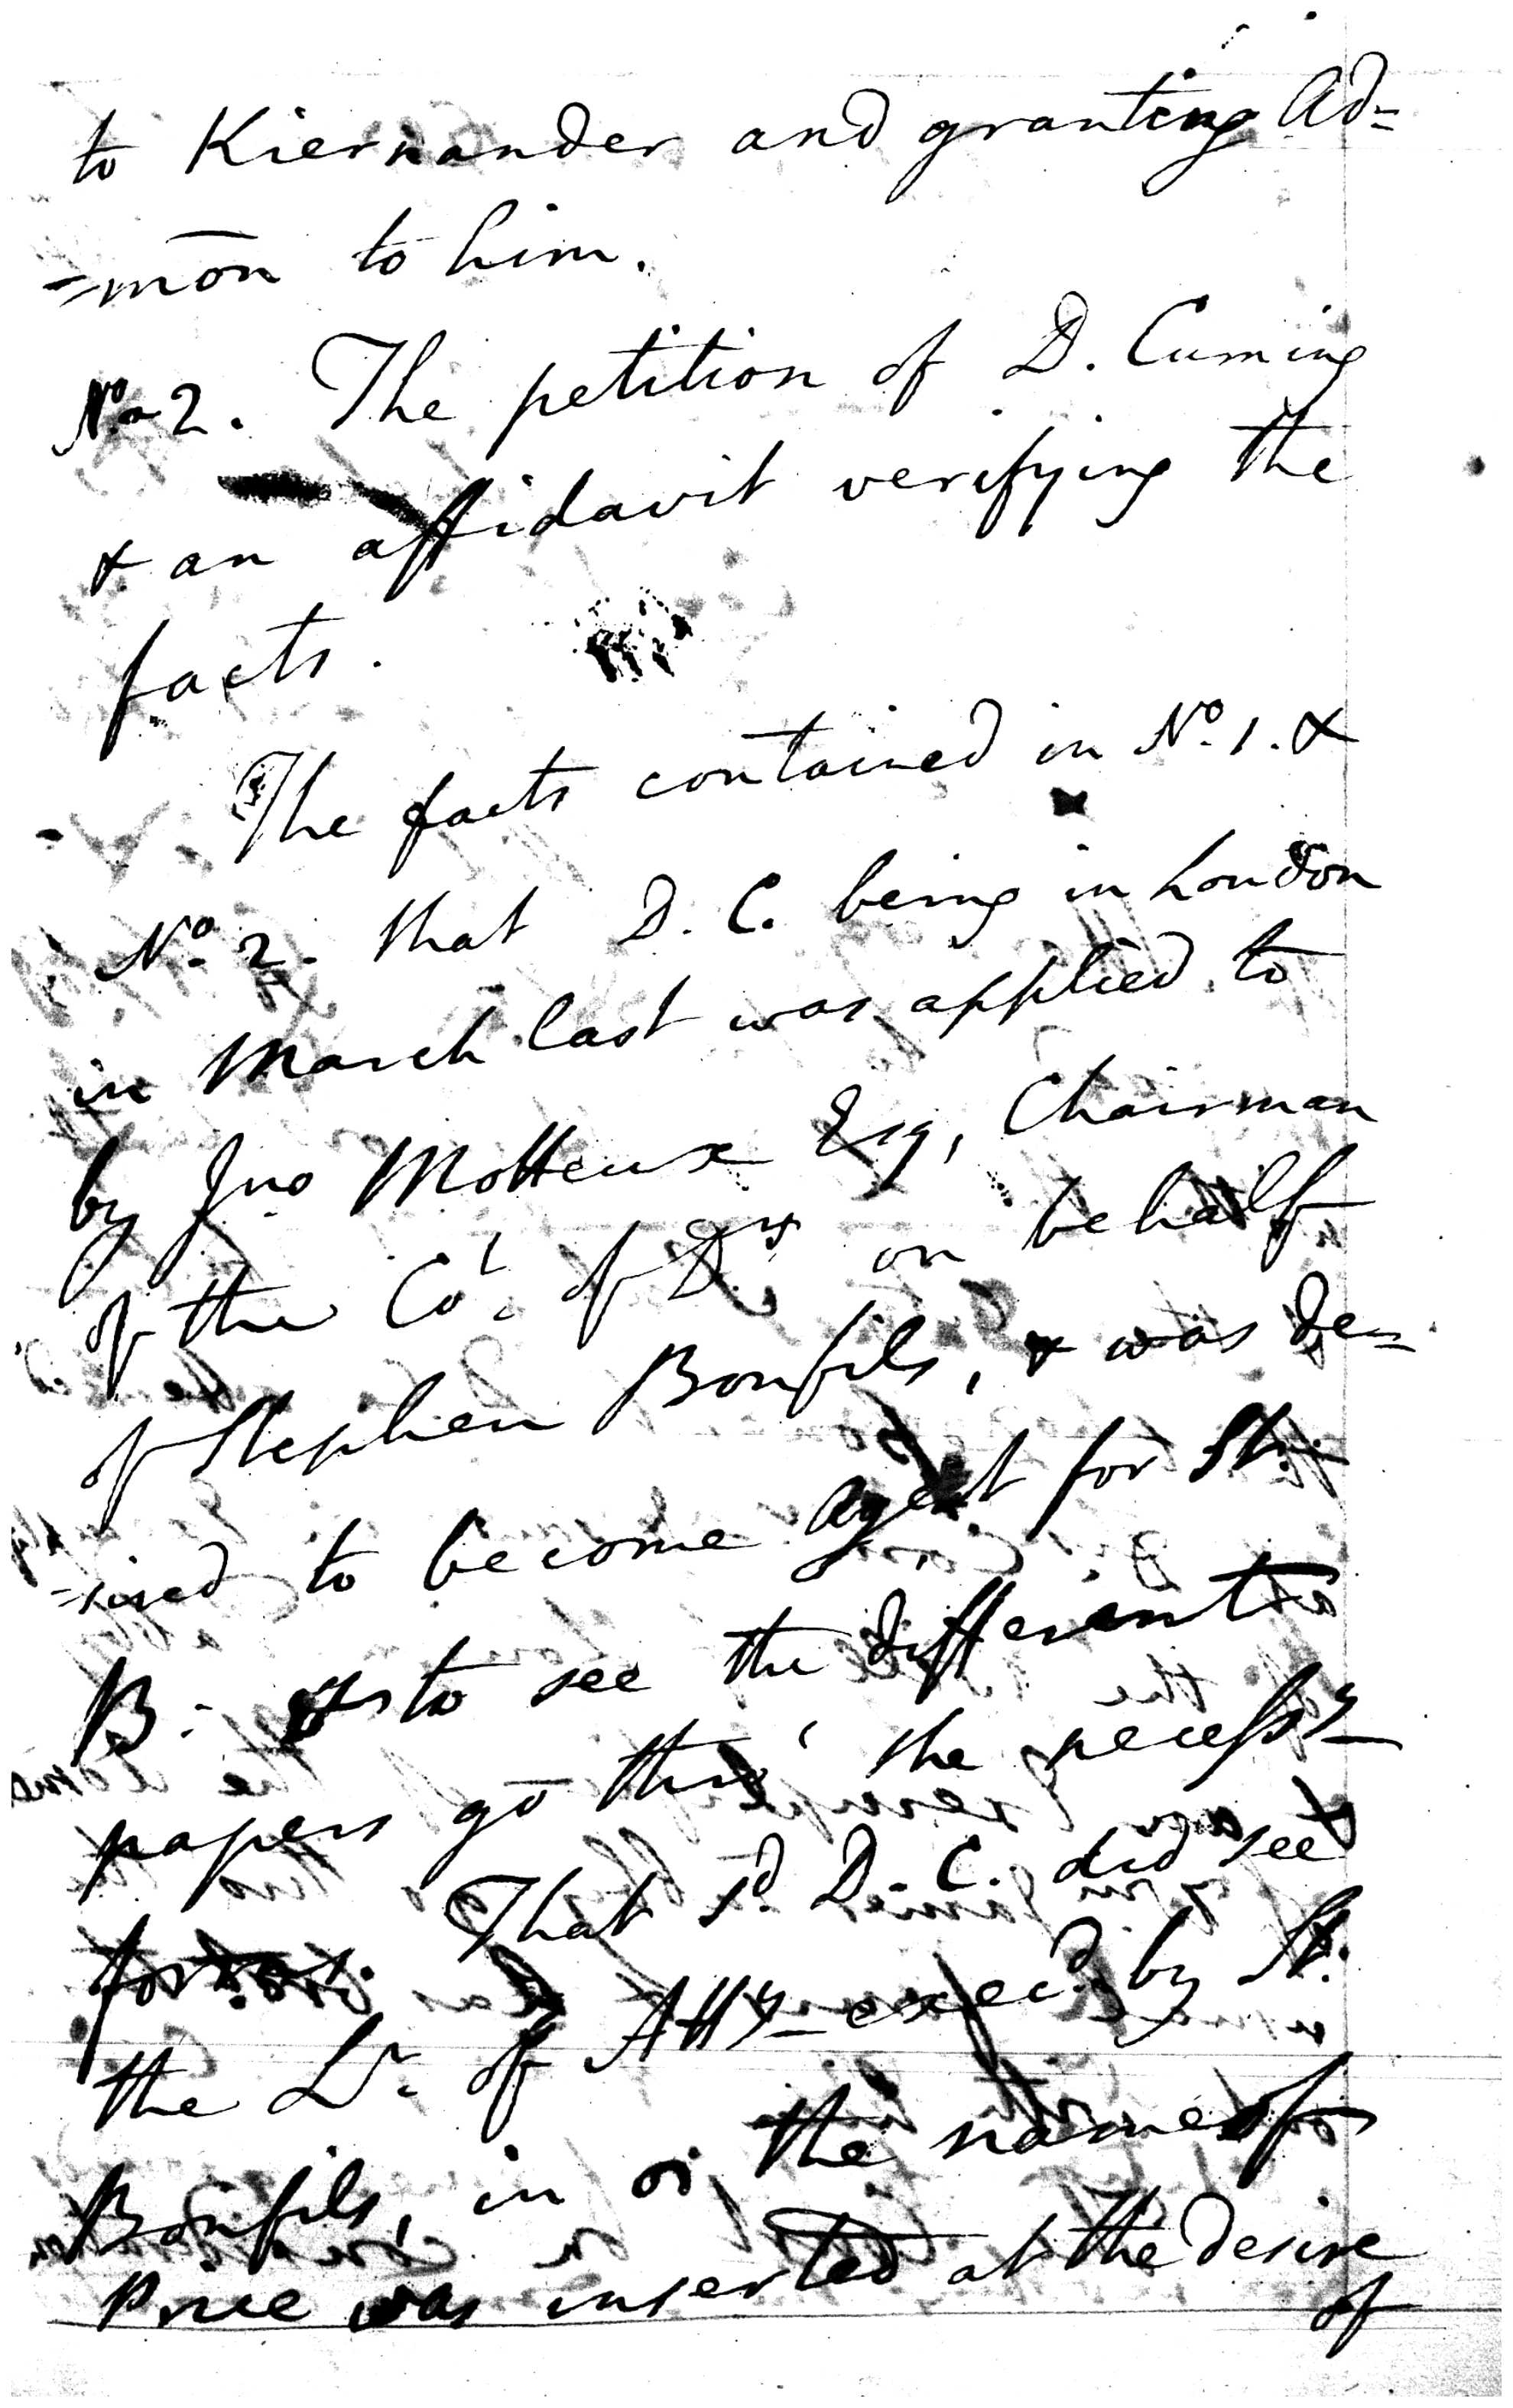 to Kiernander and granting Ad=
=mōn to him.
No. 2. The petition of D. Cuming
& an affidavit verifying the
facts.
The facts contained in No. 1. &
No. 2. that D. C. being in London
in March last was applied to
by Jno Motteux Esq, Chairman
of the Cot. of Drs on behalf
of Stephen Bonfils, & was de=
=sired to become agent for St.
B: & to see the different
papers go thro' the necessy
forms. That sd. D. C. did see
the Lr. of Atty execd. by St.
Bonfils, in the name of
Price was inserted at the desire
of